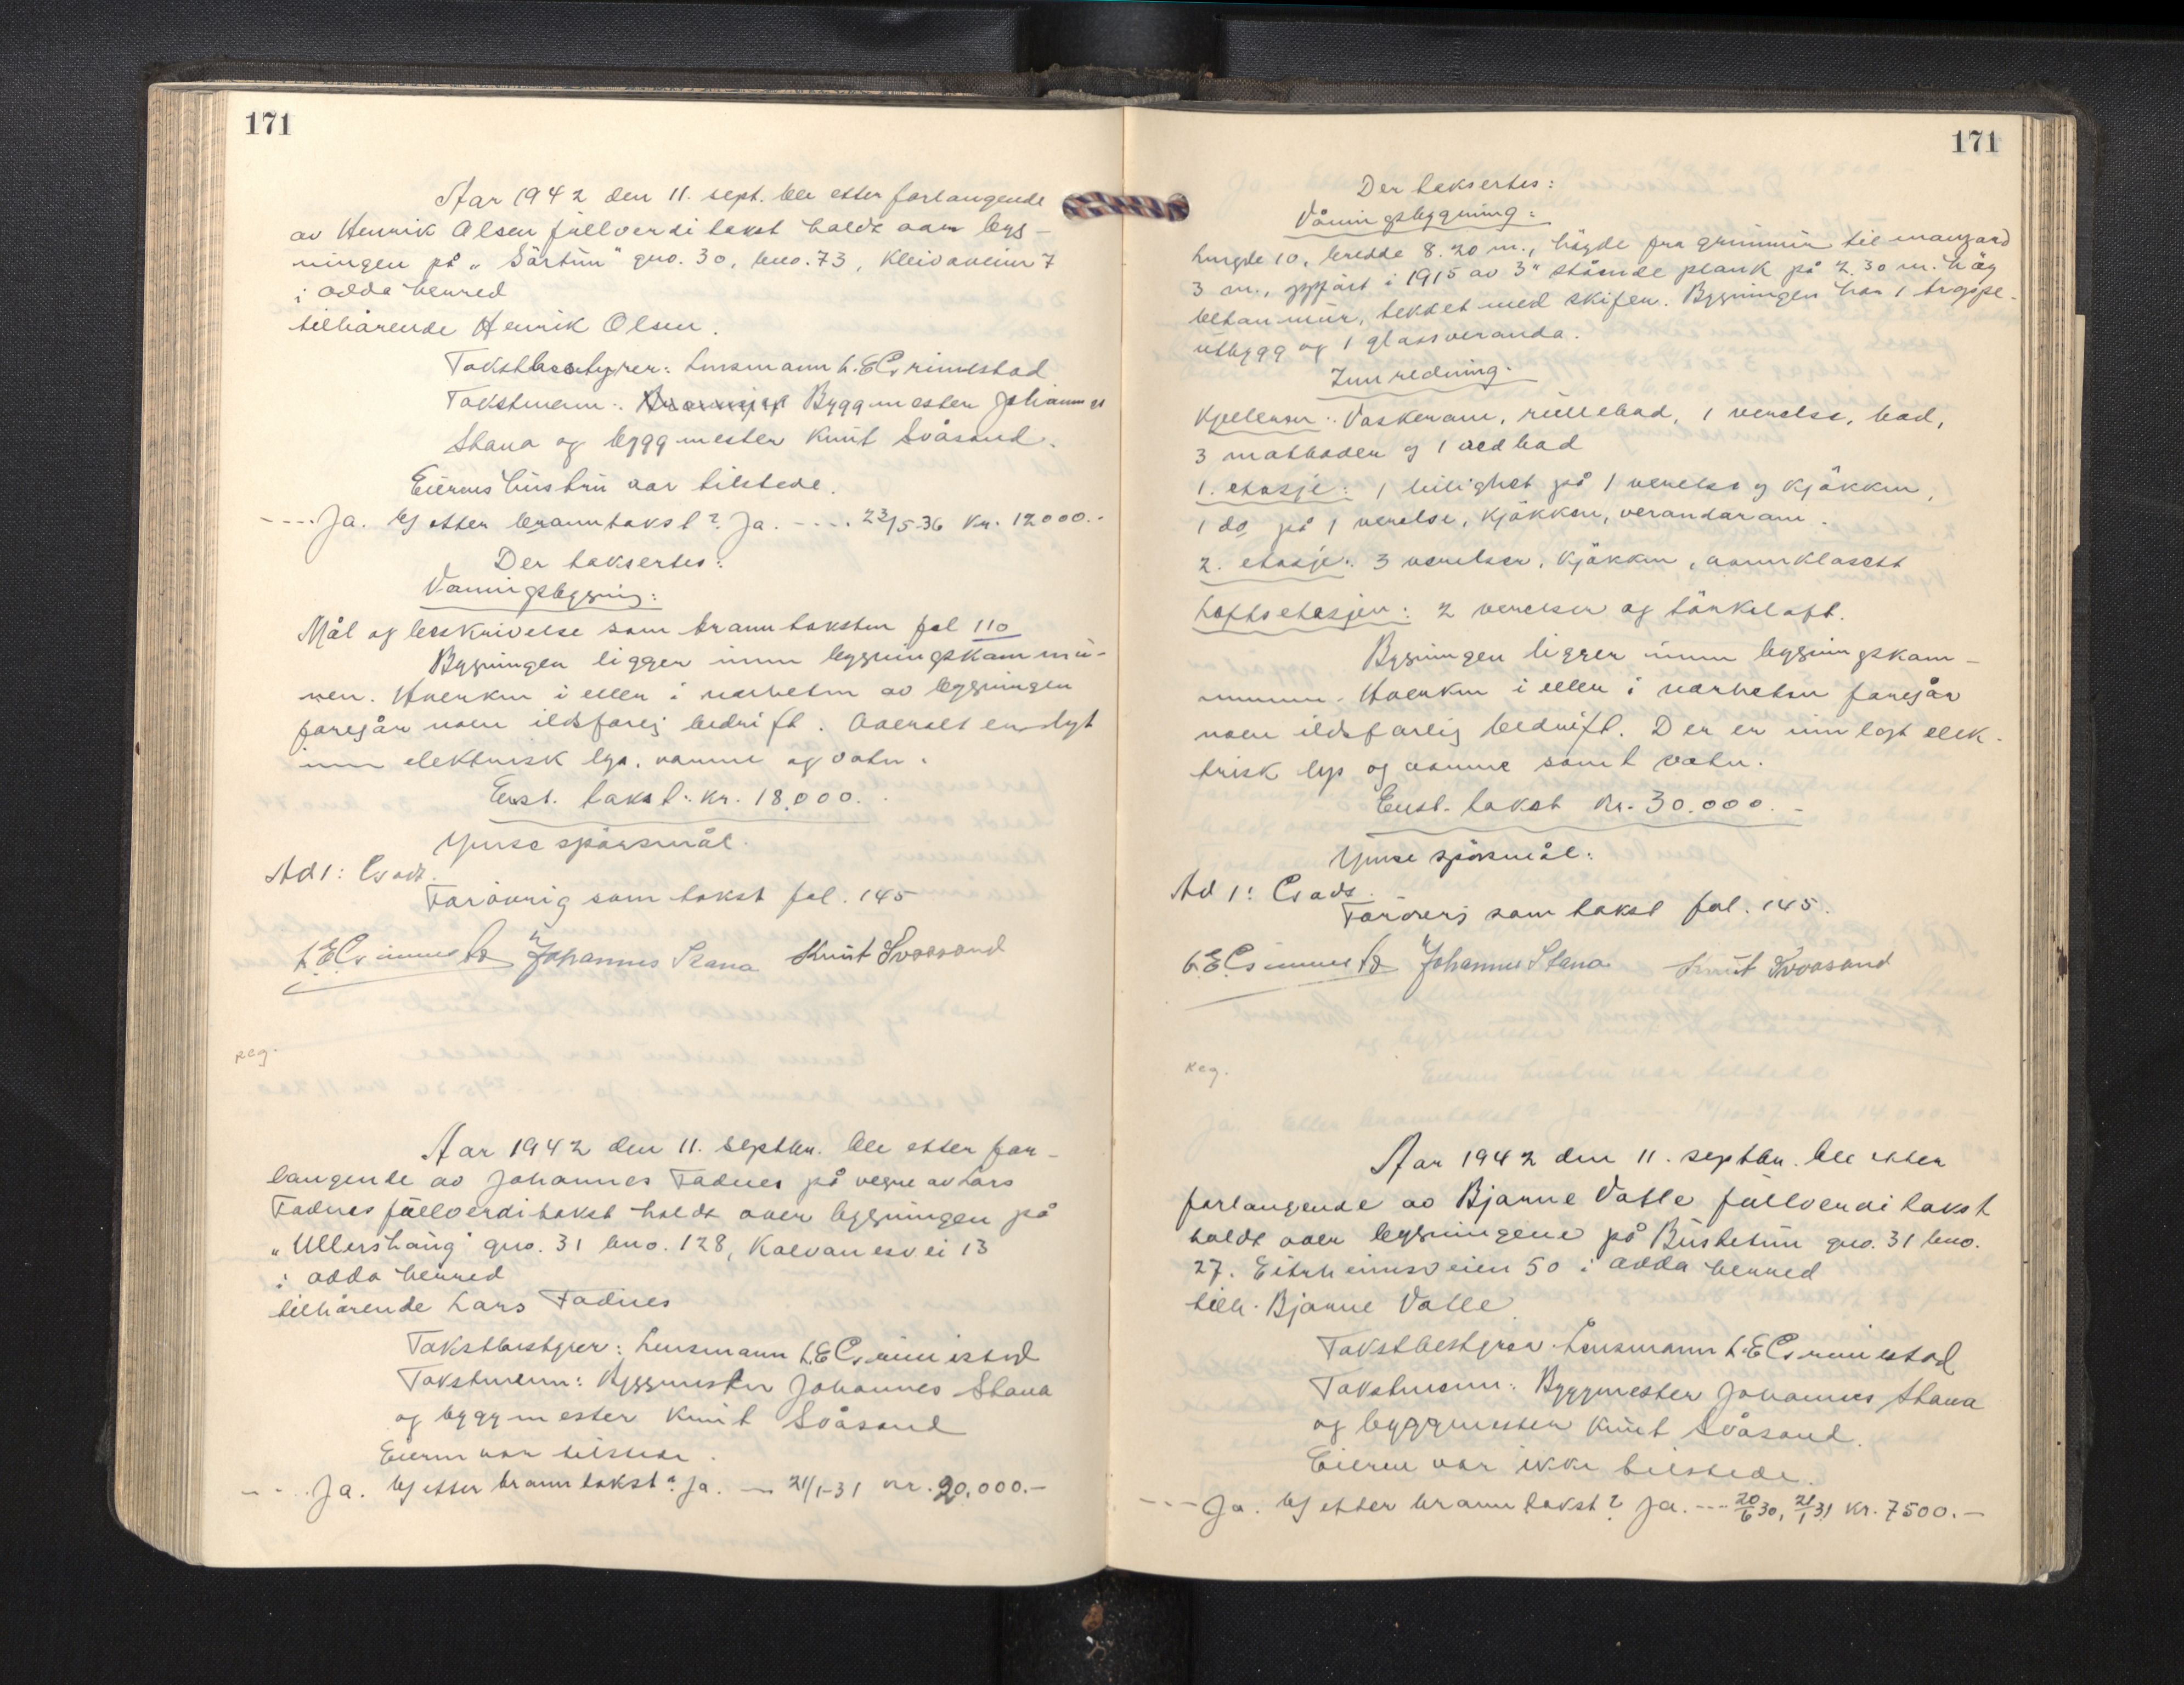 171
Aar 1942 den 11. sept. ble etter forlangende
av Henrik Olsen fullverditakst holdt over byg-
ningen på "Sörtun" gno. 30, bno. 73, Kleivavein 7
i Odda herred
tilhörende Henrik Olsen.
Takstbestyrer: Lensmann L. E. Grimestad
Takstmenn: Byggmester Johannes
Stana og byggmester Knut Svåsand.
Eierens hustru var tilstede.
---- Ja. Ej etter branntakst? Ja. ---- 23/5-36 Kr. 12000.-
Der takseртes:
Våningsbygning:
Mål og beskrivelse som branntaksten fol 110
Bygningen ligger innen bygningskommu-
nen. Hverken i eller i nærheten av bygningen
foregår noen ildsfarlig bedrift. Overalt er lagt
inn elektrisk lys, varme og vatn.
Enst. takst: kr. 18.000.-
Ymse spörsmål.
Ad 1: Godt.
Forövrig som takst fol. 145
L. E. Grimestad Johannes Stana Knut Svaasand
reg.
Aar 1942 den 11. septbr. ble etter for-
langende av Johannes Fadnes på vegne av Lars
Fadnes fullverditakst holdt over bygningen på
"Ullershaug" gno. 31 bno. 128, Kalvanesvei 13
i Odda herred
tilhörende Lars Fadnes
Takstbestyrer: Lensmann L. E. Grimestad
Takstmenn: Byggmester Johannes Stana
og byggmester Knut Svåsand
Eieren var tilstede.
---- Ja. Ej etter branntakst? Ja. -- 21/1-31 kr. 20.000.-
171
Der taksertes:
Våningsbygning:
Lengde 10, bredde 8.20 m., högde fra grunnmur til mansard
3 m., oppfört i 1915 av 3" stående plank på 2.30 m. höy
betonmur, tekket med skifer. Bygningen har 1 trappe-
utbygg og 1 glassveranda.
Innredning:
Kjelleren: Vaskerom, rullebod, 1 verelse, bad,
3 matboder og 1 vedbod
1. etasje: 1 leilighet på 1 verelse og kjökken,
1 do på 1 verelse, kjökken, verandarom.
2. etasje: 3 verelser, kjökken, vannklosett
Loftsetasjen: 2 verelser og törkeloft.
Bygningen ligger innen bygningskom-
munen. Hverken i eller i nærheten foregår
noen ildsfarlig bedrift. Der er innlagt elek-
trisk lys og varme samt vatn.
Enst. takst Kr. 30.000.-
Ymse spörsmål:
Ad 1: Godt.
Forövrig som takst fol. 145.
L. E. Grimestad Johannes Stana Knut Svaasand
reg.
Aar 1942 den 11. septbr. ble etter
forlangende av Bjarne Valle fullverditakst
holdt over bygningene på Busketun gno. 31 bno.
27. Eitrheimsveien 50 i Odda herred
tilh. Bjarne Valle
Takstbestyrer: Lensmann L. E. Grimestad
Takstmenn: Byggmester Johannes Stana
og byggmester Knut Svåsand.
Eieren var ikke tilstede.
---- Ja. Ej etter branntakst? Ja. ---- 20/6 30, 21/1 31 Kr. 7500.-